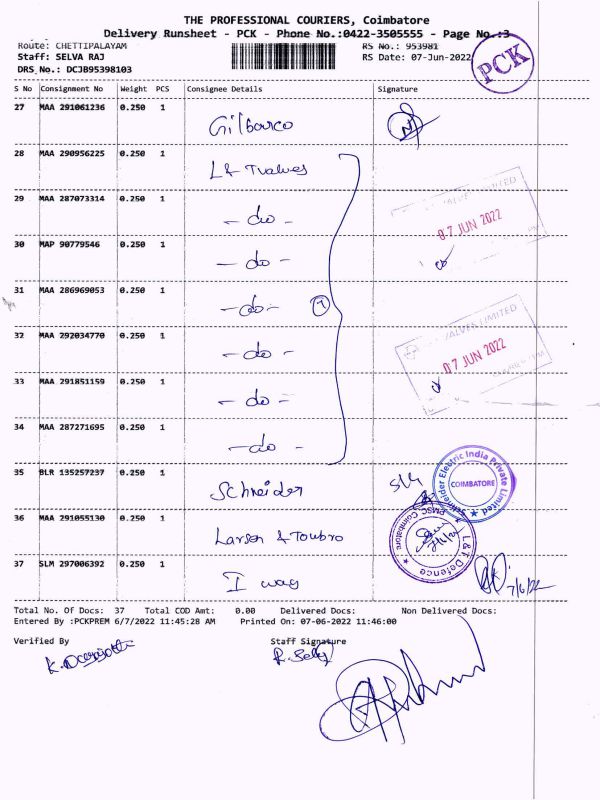 THE PROFESSIONAL COURIERS, Coimbatore
Delivery Runsheet - PCK - Phone No.:0422-3505555 - Page No.:3
Route: CHETTIPALAYAM RS No.: 953981
Staff: SELVA RAJ RS Date: 07-Jun-2022
DRS No.: DCJB95398103
PCK
S No Consignment No Weight PCS Consignee Details Signature
27 MAA 291061236 0.250 1 Gilbarco
28 MAA 290956225 0.250 1 L& Tvalves
29 MAA 287073314 0.250 1 - do -
07 JUN 2022
30 MAP 90779546 0.250 1 - do -
31 MAA 286969053 0.250 1 - do - 7
VALVES LIMITED
32 MAA 292034770 0.250 1 - do -
07 JUN 2022
33 MAA 291851159 0.250 1 - do -
34 MAA 287271695 0.250 1 - do -
35 BLR 135257237 0.250 1 Schneider
Schneider Electric India Private Limited
COIMBATORE
36 MAA 291055130 0.250 1 Larsen & Toubro
L&T Defence
PMSC Coimbatore
37 SLM 297006392 0.250 1 I way
7/6/22
Total No. Of Docs: 37 Total COD Amt: 0.00 Delivered Docs: Non Delivered Docs:
Entered By :PCKPREM 6/7/2022 11:45:28 AM Printed On: 07-06-2022 11:46:00
Verified By Staff Signature